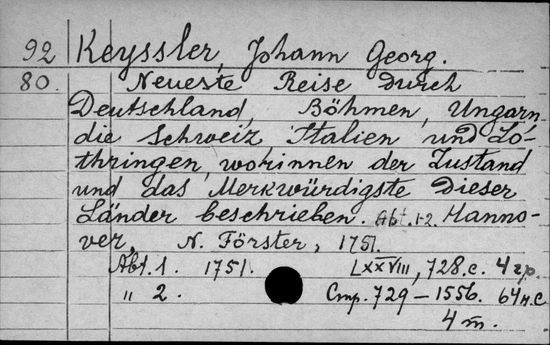 92 Keyssler, Johann Georg.
80. Neueste Reise durch
Deutschland, Böhmen, Ungarn
die Schweiz, Italien und Lo-
thringen, worinnen der Zustand
und das Merkwürdigste dieser
Länder beschrieben. Abt. 1-2. Hanno-
ver, N. Förster, 1751.
Abt. 1. 1751. LXXVIII, 728 c. 4 гр.
" 2. Стр. 729-1556. 64 н.с
4 т.